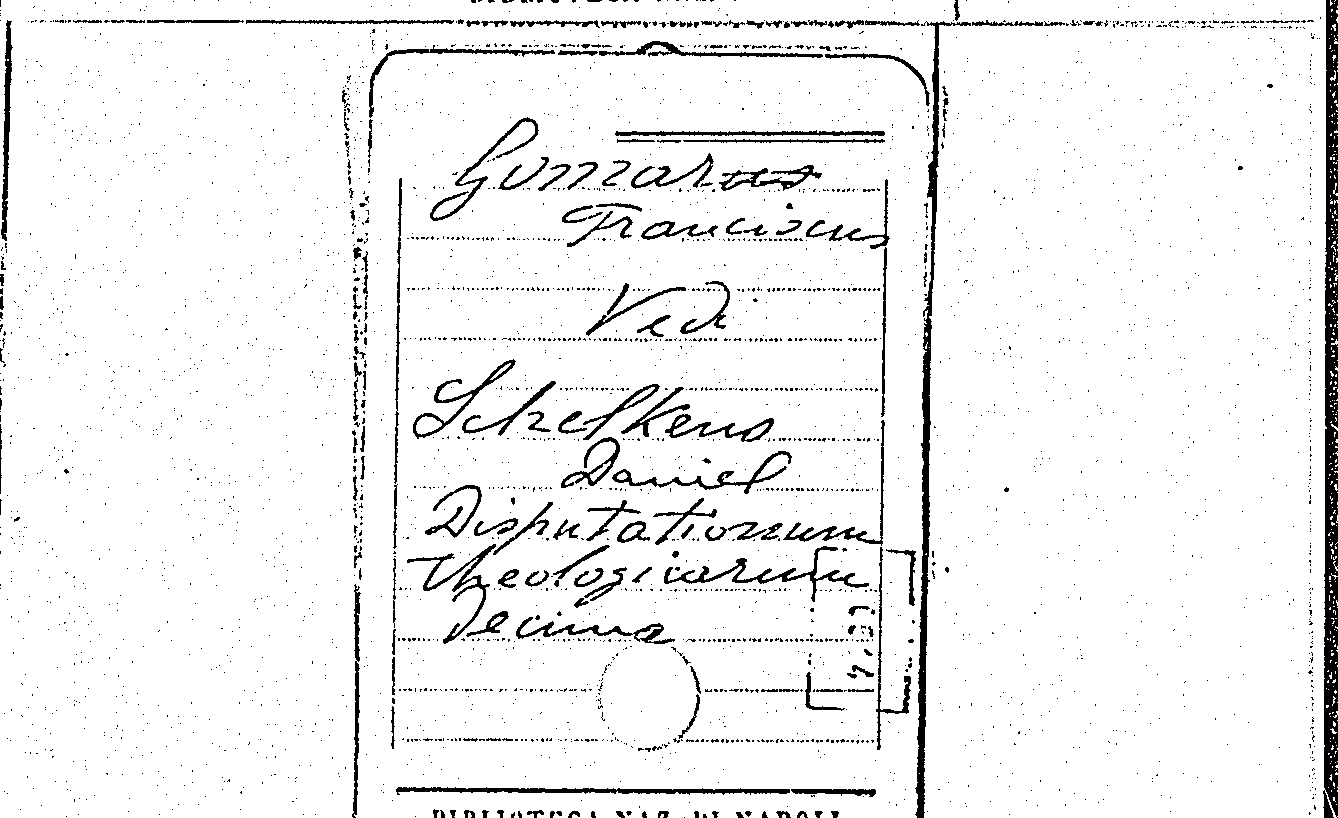 Gomarus
Franciscus
Vedi
Schelkens
Daniel
Disputationum
theologicarum
Decima
BIBLIOTECA NAZ. DI NAPOLI